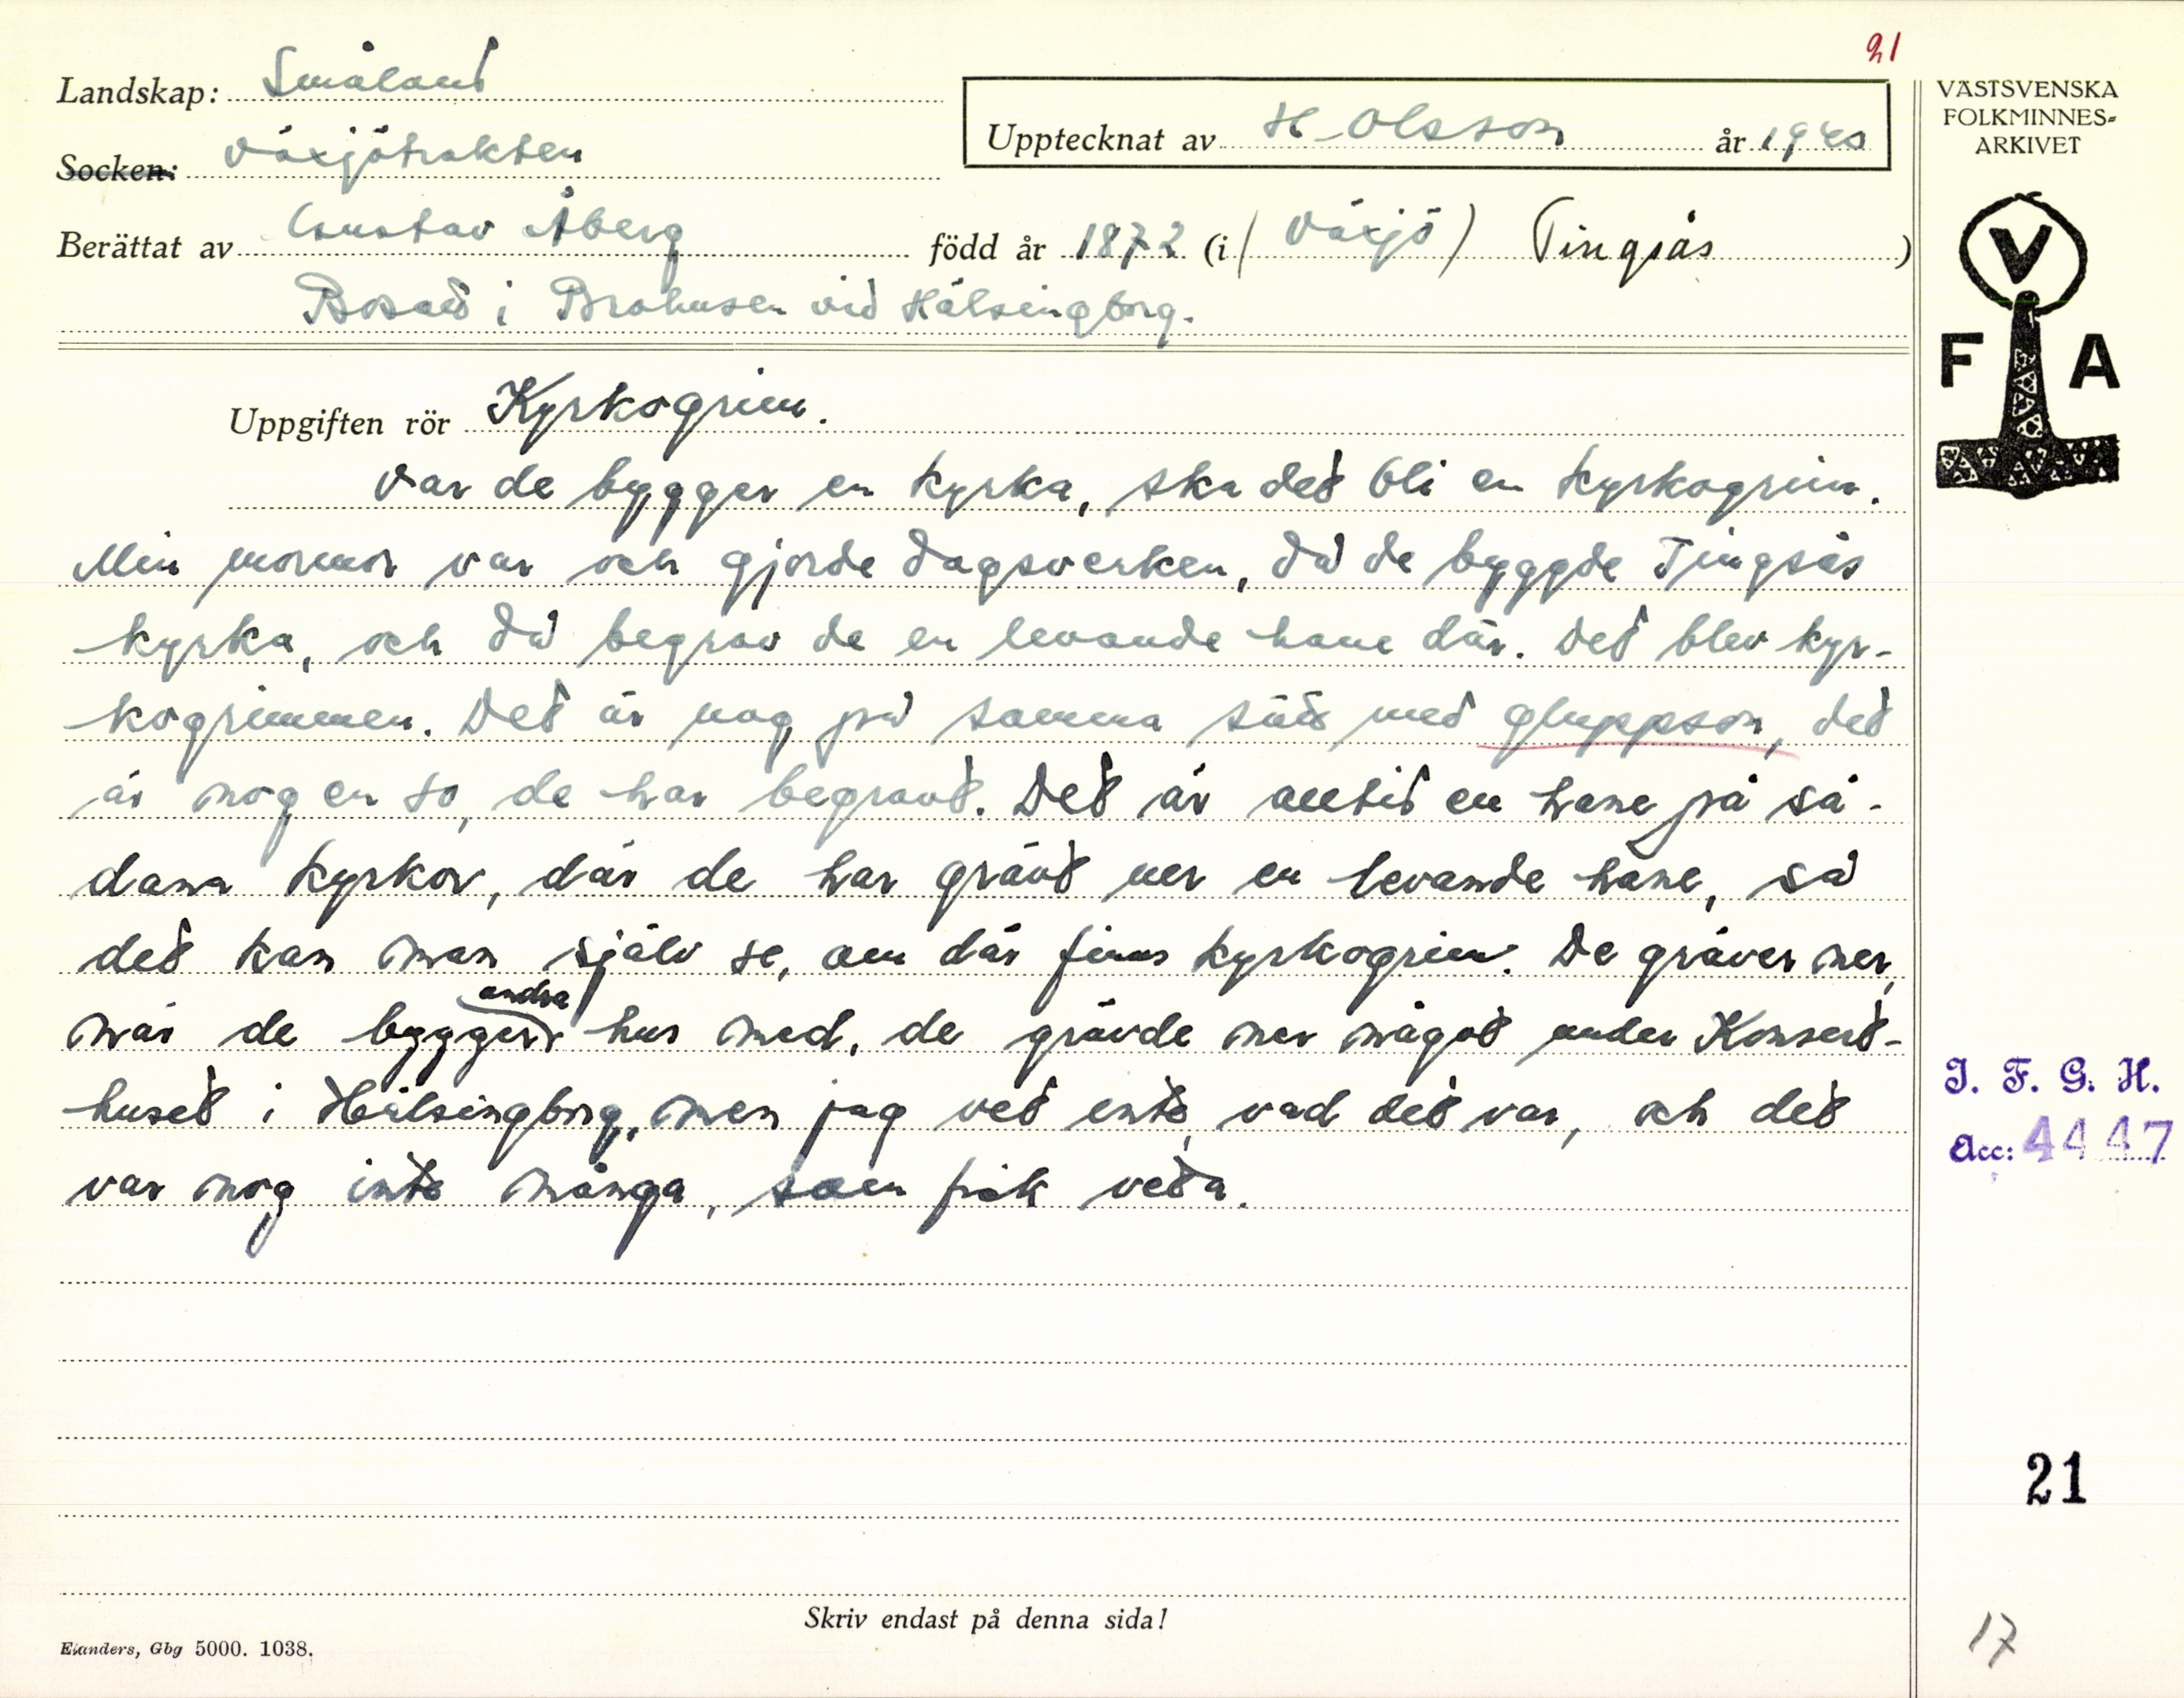 21
Landskap: Småland
VÄSTSVENSKA
FOLKMINNES-
ARKIVET
Upptecknat av H. Olsson år 1940
Socken: Växjötrakten
Berättat av Gustav Åberg född år 1872 (i (Växjö) Tingsås)
Bosatt i Brohusen vid Hälsingborg.
V
F A
Uppgiften rör Kyrkogrim.
Var de bygger en kyrka, ska det bli en kyrkogrim.
Min mormor var och gjorde dagsverken, då de byggde Tingsås
kyrka, och då begrov de en levande hane där. Det blev kyr-
kogrimmen. Det är nog på samma sätt med gluppson, det
är nog en so, de har begravt. Det är alltid en hane på så-
dana kyrkor, där de har grävt ner en levande hane, så
det kan man själv se, om där finns kyrkogrim. De gräver ner,
när de bygger andra hus med, de grävde ner något under Konsert-
huset i Hälsingborg, men jag vet inte, vad det var, och det
var nog inte många, som fick veta.
I. F. G. H.
Acc: 4447
21
Skriv endast på denna sida!
Elanders, Gbg 5000. 1038.
17